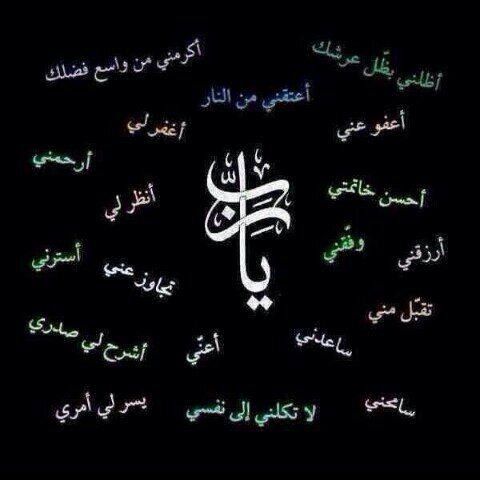 أكرمني من واسع فضلك
أظلني بظّل عرشك
أعتقني من النار
أغفر لي
أعفو عني
أرحمني
أنظر لي
أحسن خاتمتي
يا رب
أسترني
تجاوز عني
وفّقني
أرزقني
تقبّل مني
أشرح لي صدري
أعنّي
ساعدني
يسر لي أمري
لا تكلني إلى نفسي
سامحني